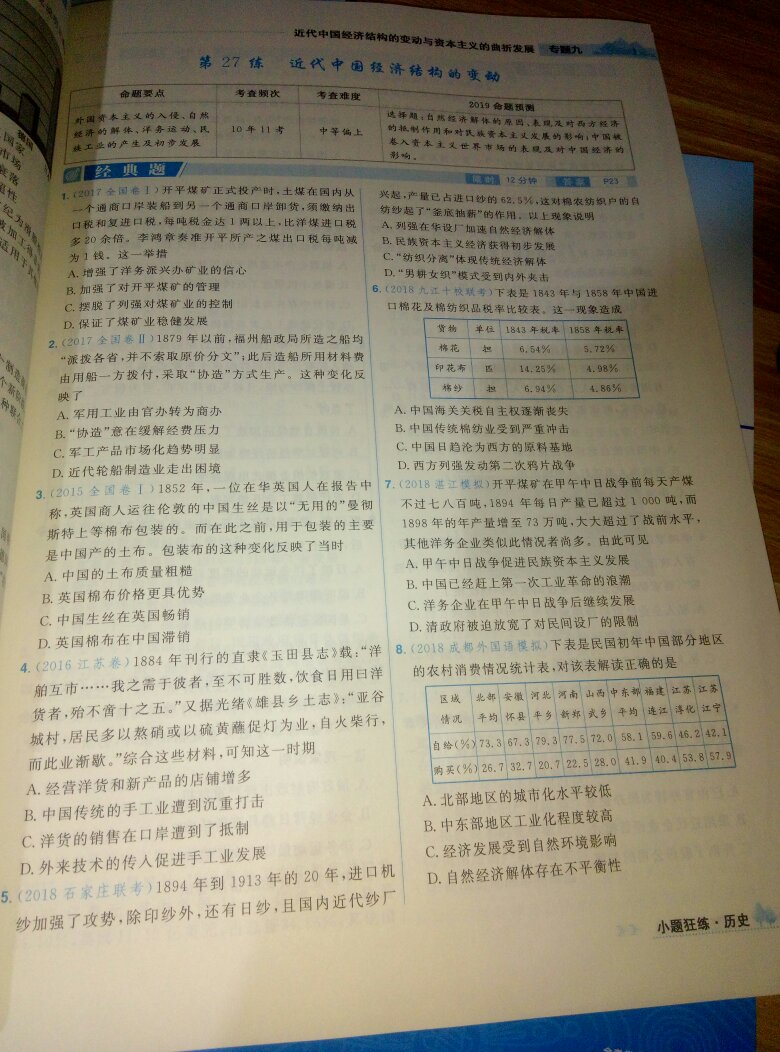 近代中国经济结构的变动与资本主义的曲折发展 专题九
第27练 近代中国经济结构的变动
命题要点 考查频次 考查难度 2019 命题预测
外国资本主义的入侵、自然
经济的解体、洋务运动、民
族工业的产生及初步发展
10年11考
中等偏上
选择题:自然经济解体的原因、表现及对西方经济
的抵制作用和对民族资本主义发展的影响;中国被
卷入资本主义世界市场的表现及对中国经济的
影响。
经典题
限时 12分钟 答案 P23
1.(2017全国卷Ⅰ)开平煤矿正式投产时,土煤在国内从
一个通商口岸装船到另一个通商口岸卸货,须缴纳出
口税和复进口税,每吨税金达1两以上,比洋煤进口税
多20余倍。李鸿章奏准开平所产之煤出口税每吨减
为1钱。这一举措
A.增强了洋务派兴办矿业的信心
B.加强了对开平煤矿的管理
C.摆脱了列强对煤矿业的控制
D.保证了煤矿业稳健发展
2.(2017全国卷Ⅱ)1879年以前,福州船政局所造之船均
“派拨各省,并不索取原价分文”;此后造船所用材料费
由用船一方拨付,采取“协造”方式生产。这种变化反
映了
A.军用工业由官办转为商办
B.“协造”意在缓解经费压力
C.军工产品市场化趋势明显
D.近代轮船制造业走出困境
3.(2015全国卷Ⅰ)1852年,一位在华英国人在报告中
称,英国商人运往伦敦的中国生丝是以“无用的”曼彻
斯特上等棉布包装的。而在此之前,用于包装的主要
是中国产的土布。包装布的这种变化反映了当时
A.中国的土布质量粗糙
B.英国棉布价格更具优势
C.中国生丝在英国畅销
D.英国棉布在中国滞销
4.(2016江苏卷)1884年刊行的直隶《玉田县志》载:“洋
舶互市……我之需于彼者,至不可胜数,饮食日用曰洋
货者,殆不啻十之五。”又据光绪《雄县乡土志》:“亚谷
城村,居民多以熬硝或以硫黄蘸促灯为业,自火柴行,
而此业渐歇。”综合这些材料,可知这一时期
A.经营洋货和新产品的店铺增多
B.中国传统的手工业遭到沉重打击
C.洋货的销售在口岸遭到了抵制
D.外来技术的传入促进手工业发展
5.(2018石家庄联考)1894年到1913年的20年,进口机
纱加强了攻势,除印纱外,还有日纱,且国内近代纱厂
兴起,产量已占进口纱的62.5%,这对棉农纺织户的自
纺纱起了“釜底抽薪”的作用。以上现象说明
A.列强在华设厂加速自然经济解体
B.民族资本主义经济获得初步发展
C.“纺织分离”体现传统经济解体
D.“男耕女织”模式受到内外夹击
6.(2018九江十校联考)下表是1843年与1858年中国进
口棉花及棉纺织品税率比较表。这一现象造成
货物 单位 1843年税率 1858年税率
棉花 担 6.54% 5.72%
印花布 匹 14.25% 4.98%
棉纱 担 6.94% 4.86%
A.中国海关关税自主权逐渐丧失
B.中国传统棉纺业受到严重冲击
C.中国日趋沦为西方的原料基地
D.西方列强发动第二次鸦片战争
7.(2018湛江模拟)开平煤矿在甲午中日战争前每天产煤
不过七八百吨,1894年每日产量已超过1 000吨,而
1898年的年产量增至73万吨,大大超过了战前水平,
其他洋务企业类似此情况者尚多。由此可见
A.甲午中日战争促进民族资本主义发展
B.中国已经赶上第一次工业革命的浪潮
C.洋务企业在甲午中日战争后继续发展
D.清政府被迫放宽了对民间设厂的限制
8.(2018成都外国语模拟)下表是民国初年中国部分地区
的农村消费情况统计表,对该表解读正确的是
区域 北部 安徽 河北 河南 山西 中东部 福建 江苏 江苏
情况 平均 怀县 平乡 新郑 武乡 平均 连江 淳化 江宁
自给(%) 73.3 67.3 79.3 77.5 72.0 58.1 59.6 46.2 42.1
购买(%) 26.7 32.7 20.7 22.5 28.0 41.9 40.4 53.8 57.9
A.北部地区的城市化水平较低
B.中东部地区工业化程度较高
C.经济发展受到自然环境影响
D.自然经济解体存在不平衡性
小题狂练·历史